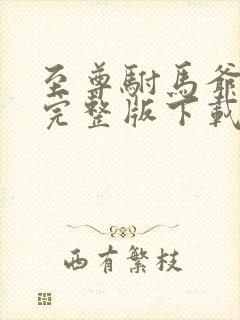 至尊駙馬爺
完整版下載
西有繁枝